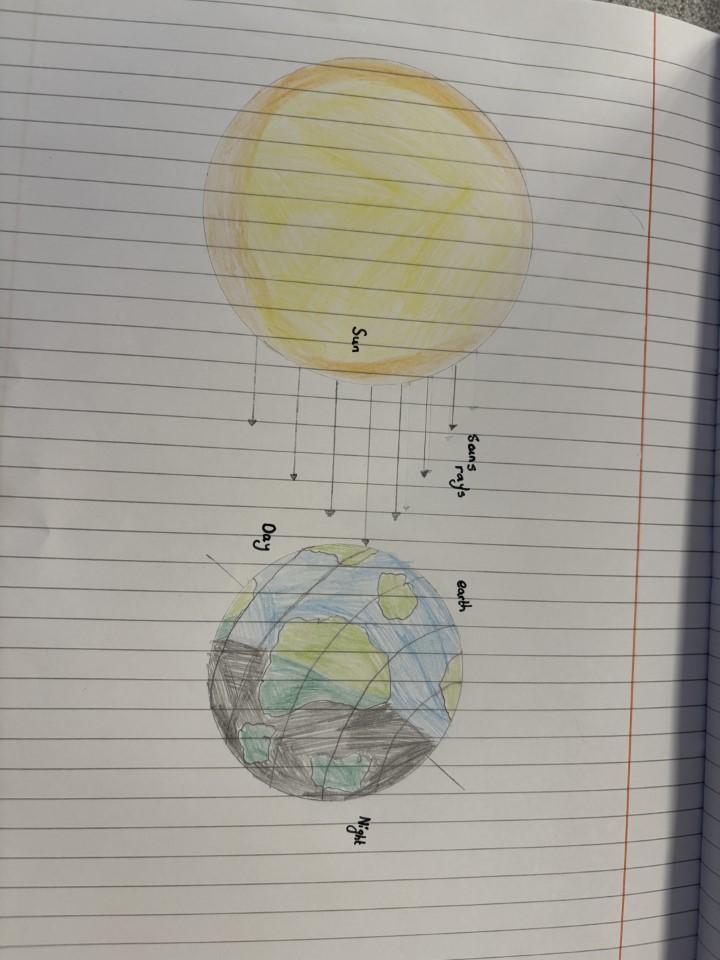 Sun
Sans
rays
earth
Day
Night